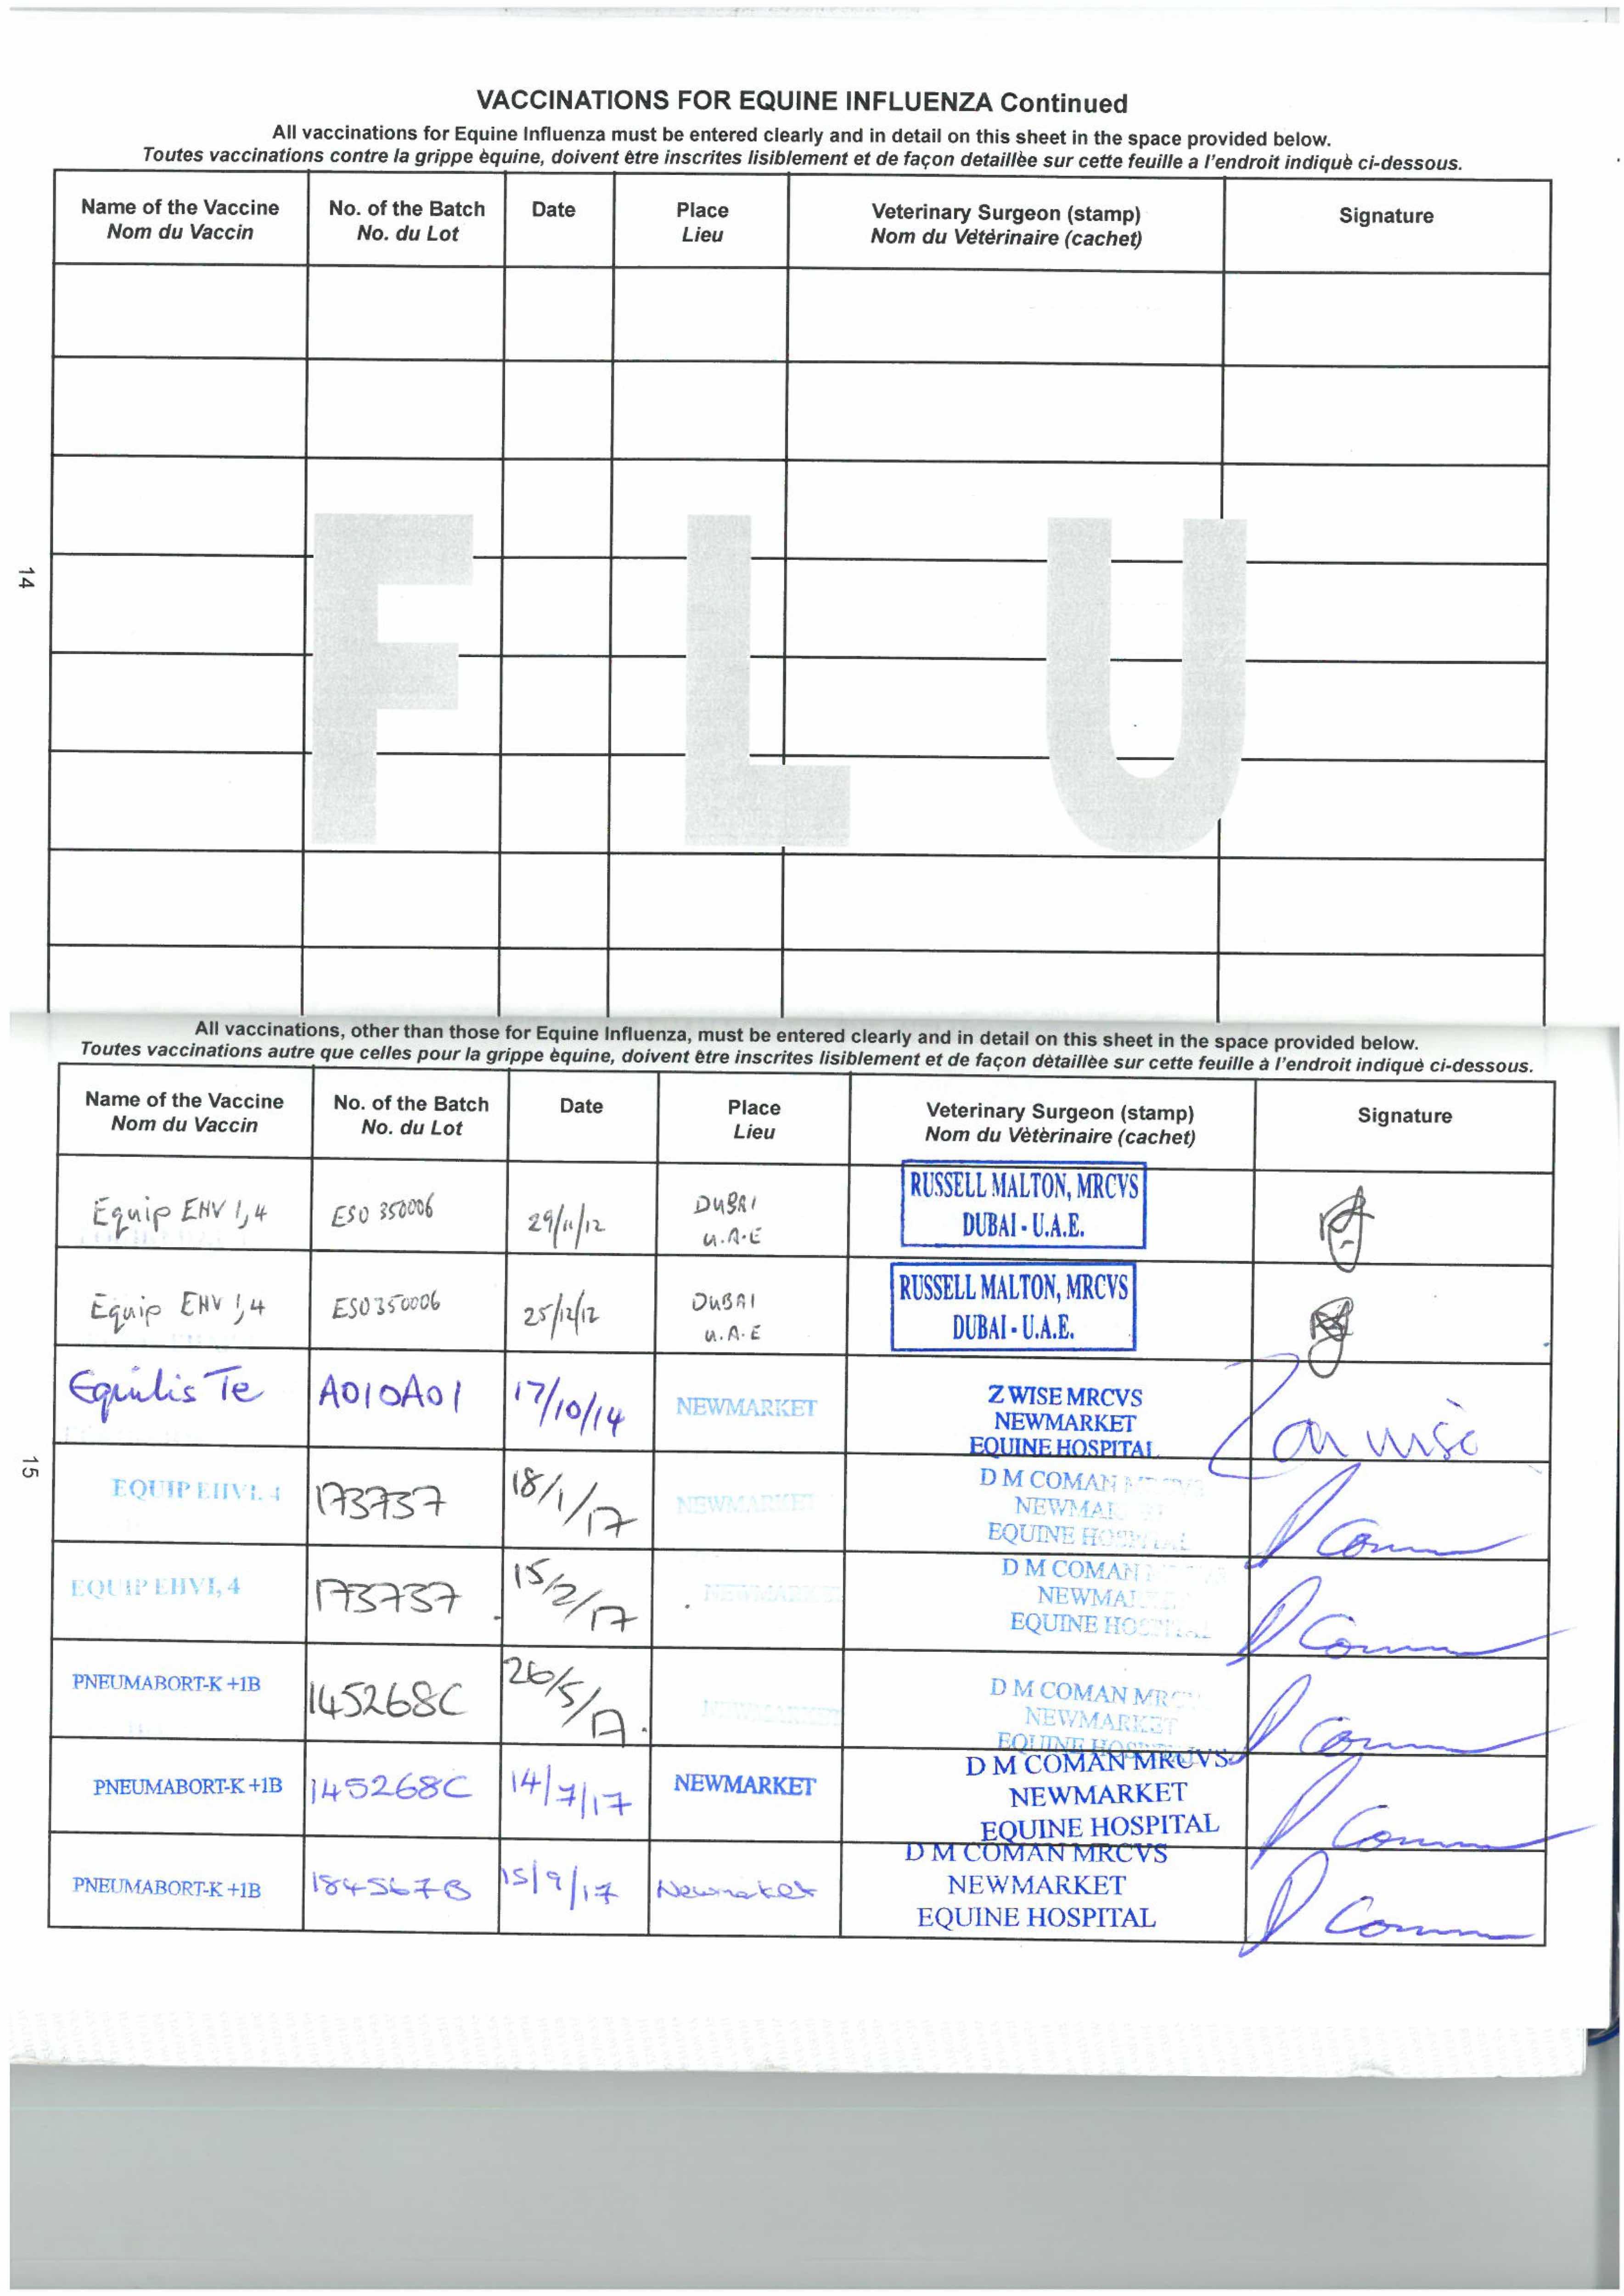 VACCINATIONS FOR EQUINE INFLUENZA Continued
All vaccinations for Equine Influenza must be entered clearly and in detail on this sheet in the space provided below.
Toutes vaccinations contre la grippe èquine, doivent ètre inscrites lisiblement et de façon detaillèe sur cette feuille a l'endroit indiquè ci-dessous.
Name of the Vaccine No. of the Batch Date Place Veterinary Surgeon (stamp) Signature
Nom du Vaccin No. du Lot Lieu Nom du Vètèrinaire (cachet)
FLU
14
All vaccinations, other than those for Equine Influenza, must be entered clearly and in detail on this sheet in the space provided below.
Toutes vaccinations autre que celles pour la grippe èquine, doivent ètre inscrites lisiblement et de façon dètaillèe sur cette feuille à l'endroit indiquè ci-dessous.
Name of the Vaccine No. of the Batch Date Place Veterinary Surgeon (stamp) Signature
Nom du Vaccin No. du Lot Lieu Nom du Vètèrinaire (cachet)
Equip EHV 1,4 ESO 350006 29/11/12 DUBAI RUSSELL MALTON, MRCVS
U.A.E DUBAI - U.A.E.
Equip EHV 1,4 ESO350006 25/12/12 DUBAI RUSSELL MALTON, MRCVS
U.A.E DUBAI - U.A.E.
Equilis Te A010A01 17/10/14 NEWMARKET Z WISE MRCVS
NEWMARKET
EQUINE HOSPITAL
15
EQUIP EHV1, 4 173737 18/1/17 NEWMARKET D M COMAN MRCVS
NEWMARKET
EQUINE HOSPITAL
EQUIP EHV1, 4 173737 15/2/17 NEWMARKET D M COMAN
NEWMARKET
EQUINE HOSPITAL
PNEUMABORT-K +1B 145268C 26/5/17. NEWMARKET D M COMAN MRCVS
NEWMARKET
EQUINE HOSPITAL
PNEUMABORT-K +1B 145268C 14/7/17 NEWMARKET D M COMAN MRCVS
NEWMARKET
EQUINE HOSPITAL
PNEUMABORT-K +1B 184567B 15/9/17 Newmarket D M COMAN MRCVS
NEWMARKET
EQUINE HOSPITAL